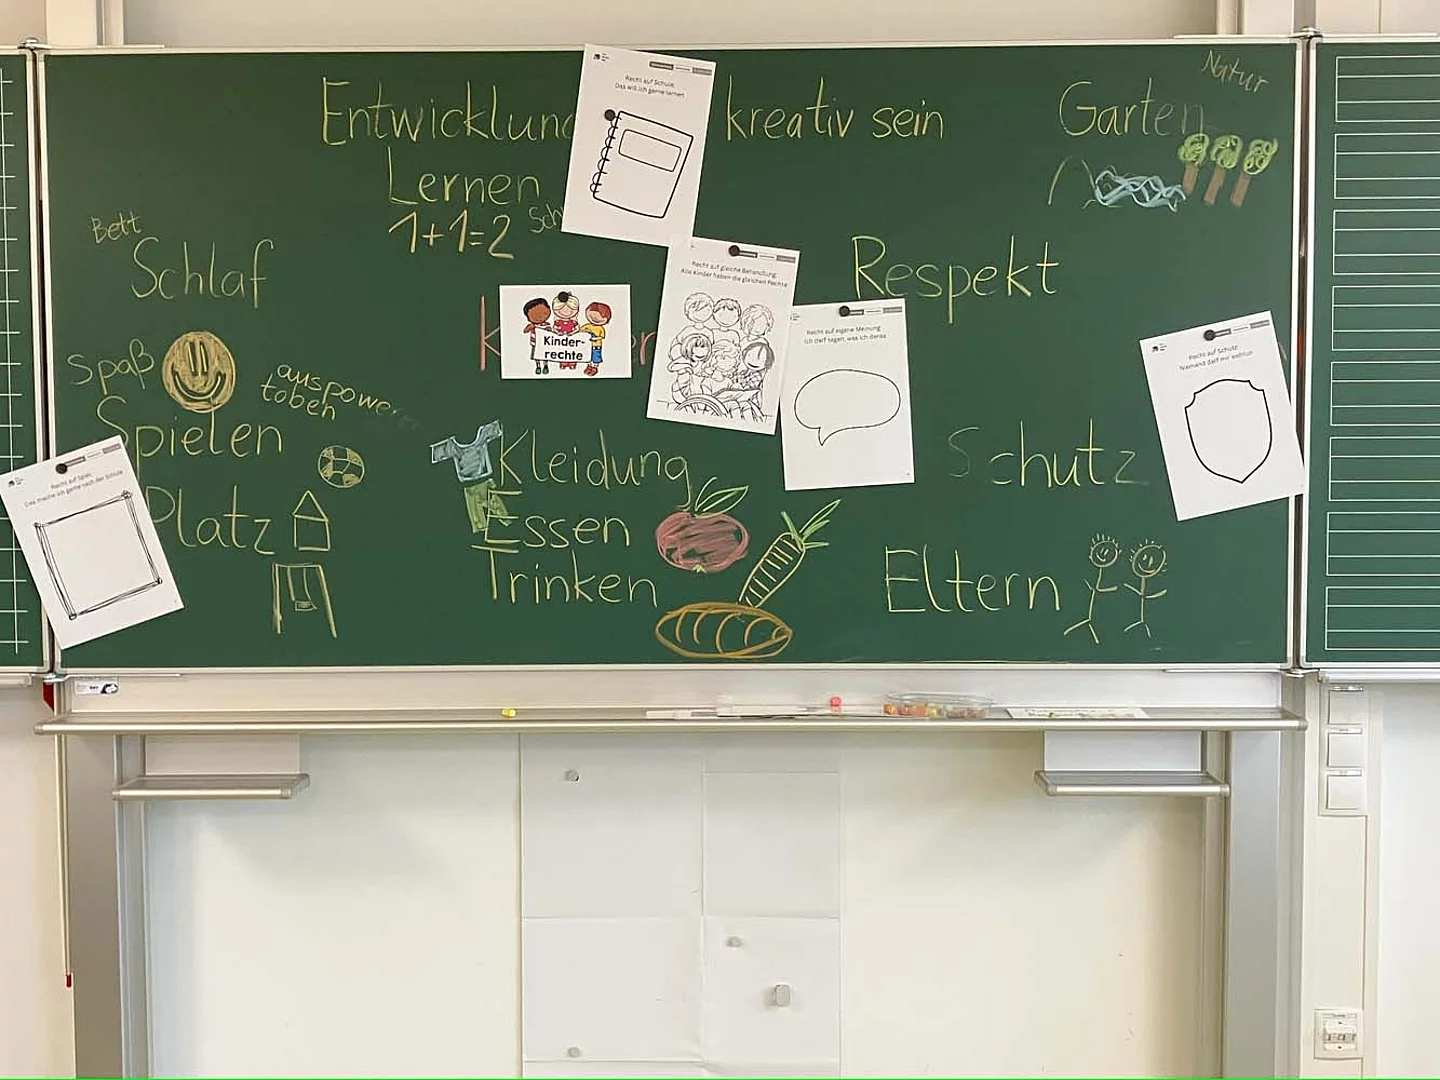 Natur
Entwicklung kreativ sein Garten
Lernen
1+1=2 Sch
Bett
Schlaf
Respekt
Spaß
auspower
toben
Spielen
Platz
Kleidung
Essen
Trinken
Schutz
Eltern
Recht auf Schule:
Das will ich gerne lernen
Kinder-
rechte
Recht auf gleiche Behandlung:
Alle Kinder haben die gleichen Rechte
Recht auf eigene Meinung:
Ich darf sagen, was ich denke
Recht auf Schutz:
Niemand darf mir wehtun
Recht auf Spiel:
Das mache ich gerne nach der Schule